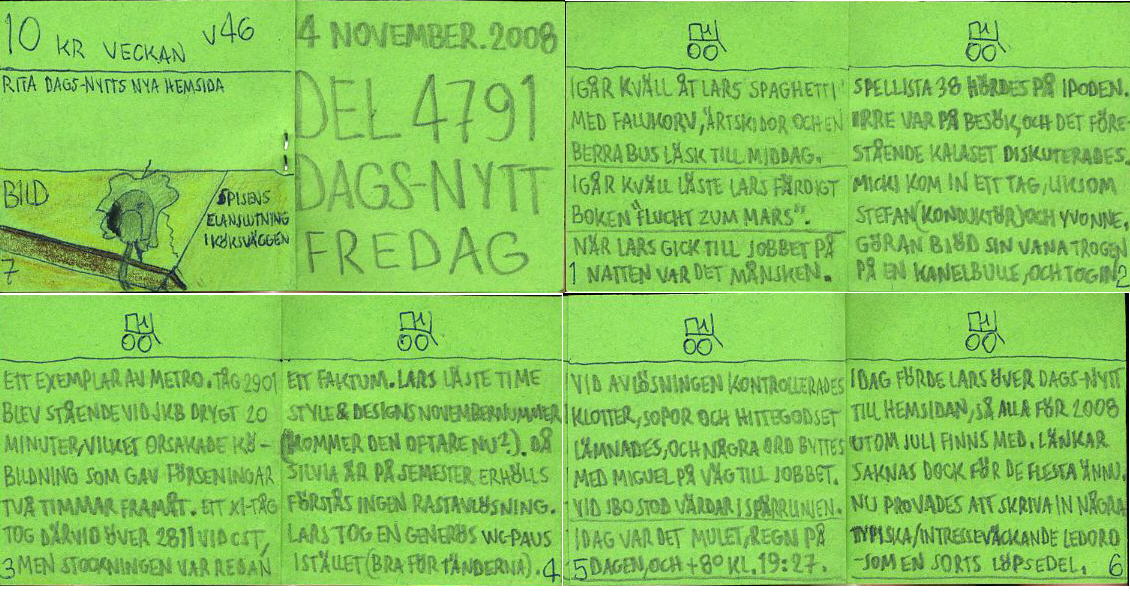 10 KR VECKAN V46
RITA DAGS-NYTTS NYA HEMSIDA
BILD
SPISENS
ELANSLUTNING
I KÖKSVÄGGEN
7
4 NOVEMBER.2008
DEL 4791
DAGS-NYTT
FREDAG
IGÅR KVÄLL ÅT LARS SPAGHETTI
MED FALUKORV, ÄRTSKIDOR OCH EN
BERRA BUS LÄSK TILL MIDDAG.
IGÅR KVÄLL LÄSTE LARS FÄRDIGT
BOKEN "FLUCHT ZUM MARS".
NÄR LARS GICK TILL JOBBET PÅ
1 NATTEN VAR DET MÅNSKEN.
SPELLISTA 38 HÖRDES PÅ IPODEN.
IRRE VAR PÅ BESÖK, OCH DET FÖRE-
STÅENDE KALASET DISKUTERADES.
MICKI KOM IN ETT TAG, LIKSOM
STEFAN (KONDUKTÖR) OCH YVONNE.
GÖRAN BJÖD SIN VANA TROGEN
PÅ EN KANELBULLE, OCH TOG IN 2
ETT EXEMPLAR AV METRO. TÅG 2901
BLEV STÅENDE VID JKB DRYGT 20
MINUTER, VILKET ORSAKADE KÖ-
BILDNING SOM GAV FÖRSENINGAR
TVÅ TIMMAR FRAMÅT. ETT X1-TÅG
TOG DÄRVID ÖVER 2811 VID CST,
3 MEN STOCKNINGEN VAR REDAN
ETT FAKTUM. LARS LÄSTE TIME
STYLE & DESIGNS NOVEMBERNUMMER
(KOMMER DEN OFTARE NU?). DÅ
SILVIA ÄR PÅ SEMESTER ERHÖLLS
FÖRSTÅS INGEN RASTAVLÖSNING.
LARS TOG EN GENERÖS WC-PAUS
ISTÄLLET (BRA FÖR TÄNDERNA). 4
VID AVLÖSNINGEN KONTROLLERADES
KLOTTER, SOPOR OCH HITTEGODSET
LÄMNADES, OCH NÅGRA ORD BYTTES
MED MIGUEL PÅ VÄG TILL JOBBET.
VID SBO STOD VÄRDAR I SPÄRRLINJEN.
IDAG VAR DET MULET, REGN PÅ
5 DAGEN, OCH +8° KL. 19:27.
IDAG FÖRDE LARS ÖVER DAGS-NYTT
TILL HEMSIDAN, SÅ ALLA FÖR 2008
UTOM JULI FINNS MED. LÄNKAR
SAKNAS DOCK FÖR DE FLESTA ÄNNU.
NU PROVADES ATT SKRIVA IN NÅGRA
TYPISKA/INTRESSEVÄCKANDE LEDORD
-SOM EN SORTS LÖPSEDEL. 6